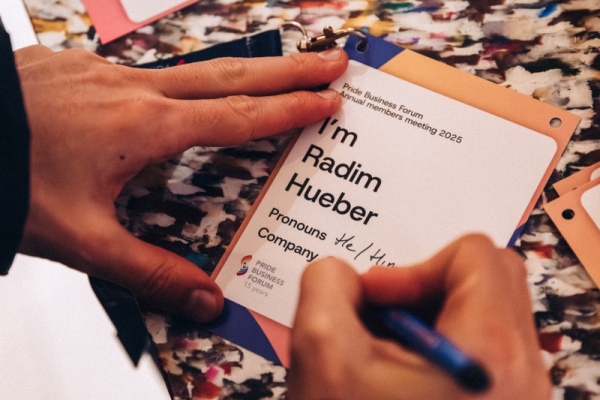 Pride Business Forum
Annual members meeting 2025
I'm
Radim
Hueber
Pronouns He/Him
Company
PRIDE
BUSINESS
FORUM
15 years